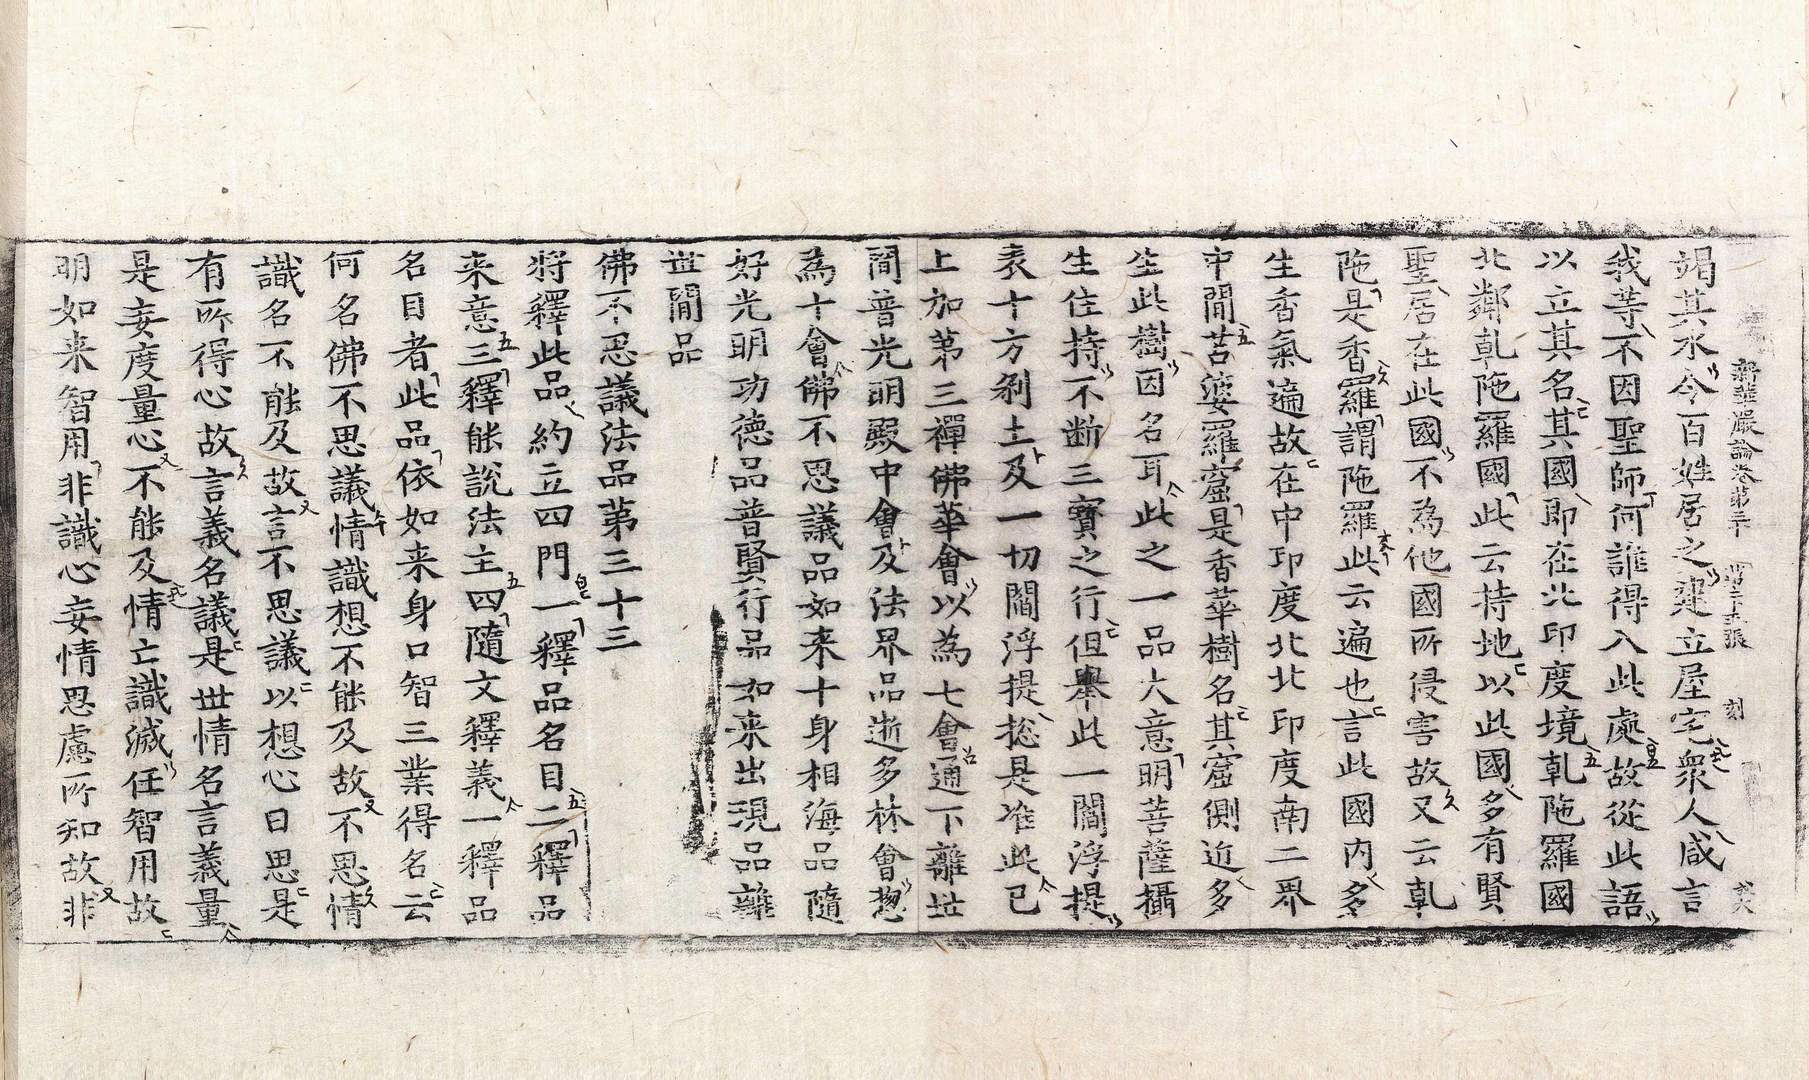 新華嚴論卷第三十 第二十張 刻
竭其水今百姓居之建立屋宅衆人咸言
我等不因聖師何誰得入此處故從此語
以立其名其國即在北印度境乹陁羅國
北鄰乹陁羅國此云持地以此國多有賢
聖居在此國不為他國所侵害故又云乹
陁是香羅謂陁羅此云遍也言此國内多
生香氣遍故在中印度北北印度南二界
中間苫婆羅窟是香華樹名其窟側近多
生此樹因名耳此之一品大意明菩薩攝
生住持不断三寶之行但舉此一閻浮提
表十方刹土及一切閻浮提捴是准此已
上加第三禪佛華會以為七會通下離世
間普光明殿中會及法界品逝多林會惣
為十會佛不思議品如来十身相海品隨
好光明功德品普賢行品如来出現品離
世間品
佛不思議法品第三十三
将釋此品約立四門一釋品名目二釋品
来意三釋能說法主四隨文釋義一釋品
名目者此品依如来身口智三業得名云
何名佛不思議情識想不能及故不思情
識名不能及故言不思議以想心曰思是
有所得心故言義名議是世情名言義量
是妄度量心不能及情亡識滅任智用故
明如来智用非識心妄情思慮所知故非